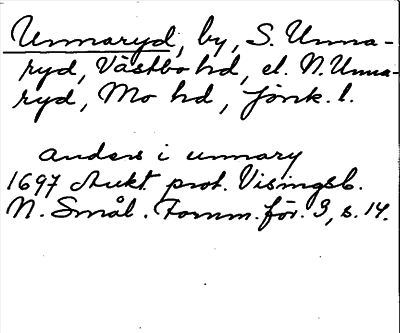 Unnaryd, by, S. Unna-
ryd, Västbo hd, el. N. Unna-
ryd, Mo hd, Jönk. l.
anders i unnary
1697 Aukt. prot. Visingsb.
N. Smål. Fornm. för. 3, s. 14.